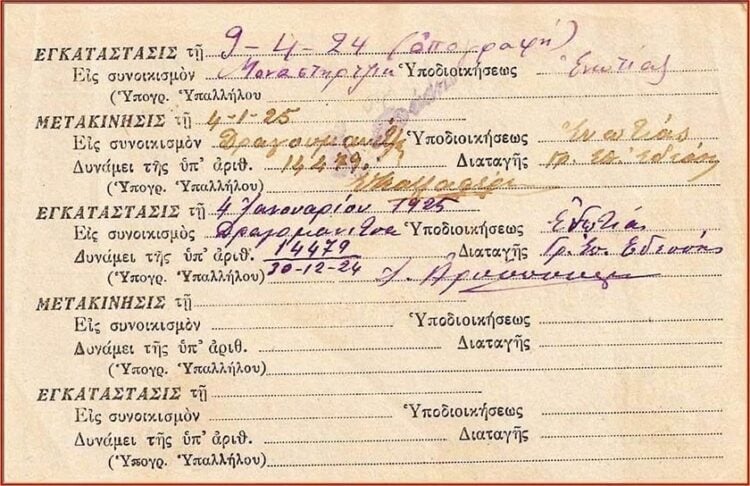 ΕΓΚΑΤΑΣΤΑΣΙΣ τῇ 9-4-24 (ἀπογραφή)
Εἰς συνοικισμὸν Μοναστηρτζικ Ὑποδιοικήσεως Ἐνωτίας
(Ὑπογρ. Ὑπαλλήλου
ΜΕΤΑΚΙΝΗΣΙΣ τῇ 4-1-25
Εἰς συνοικισμὸν Δραγουμανίτζα Ὑποδιοικήσεως Ἐνωτίας
Δυνάμει τῆς ὑπ' ἀριθ. 14479. Διαταγῆς Γρ. Επ. Εδέσσης
(Ὑπογρ. Ὑπαλλήλου)
ΕΓΚΑΤΑΣΤΑΣΙΣ τῇ 4 Ιανουαρίου 1925
Εἰς συνοικισμὸς Δραγομανιτσα Ὑποδιοικήσεως Ενωτίας
Δυνάμει τῆς ὑπ' ἀριθ. 14479 Διαταγῆς Γρ. Επ. Εδεσσης
(Ὑπογρ. Ὑπαλλήλου) 30-12-24
ΜΕΤΑΚΙΝΗΣΙΣ τῇ
Εἰς συνοικισμὸν Ὑποδιοικήσεως
Δυνάμει τῆς ὑπ' ἀριθ. Διαταγῆς
(Ὑπογρ. Ὑπαλλήλου)
ΕΓΚΑΤΑΣΤΑΣΙΣ τῇ
Εἰς συνοικισμὸν Ὑποδιοικήσεως
Δυνάμει τῆς ὑπ' ἀριθ. Διαταγῆς
(Ὑπογρ. Ὑπαλλήλου)